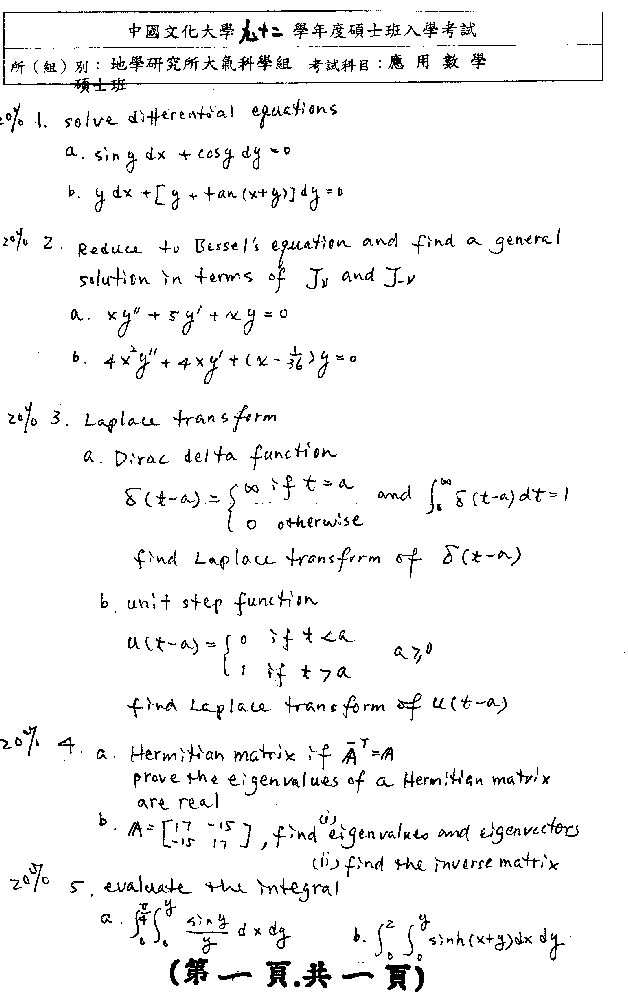 中國文化大學九十二學年度碩士班入學考試
所(組)別：地學研究所大氣科學組 考試科目：應用數學
碩士班
20% 1. solve differential equations
a. sin y dx + cos y dy = 0
b. y dx + [y + tan(x+y)] dy = 0
20% 2. Reduce to Bessel's equation and find a general
solution in terms of J_ν and J_-ν
a. xy'' + 5y' + xy = 0
b. 4x²y'' + 4xy' + (x - 1/36)y = 0
20% 3. Laplace transform
a. Dirac delta function
δ(t-a) = { ∞ if t = a and ∫₀^∞ δ(t-a)dt = 1
0 otherwise
find Laplace transform of δ(t-a)
b. unit step function
u(t-a) = { 0 if t < a a ≥ 0
1 if t > a
find Laplace transform of u(t-a)
20% 4. a. Hermitian matrix if Ā^T = A
prove the eigenvalues of a Hermitian matrix
are real
b. A = [17 -15
-15 17], find (i) eigenvalues and eigenvectors
(ii) find the inverse matrix
20% 5. evaluate the integral
a. ∫₀^(π/4) ∫₀^y (sin y / y) dx dy b. ∫₀² ∫₀^y sinh(x+y) dx dy
(第一頁.共一頁)